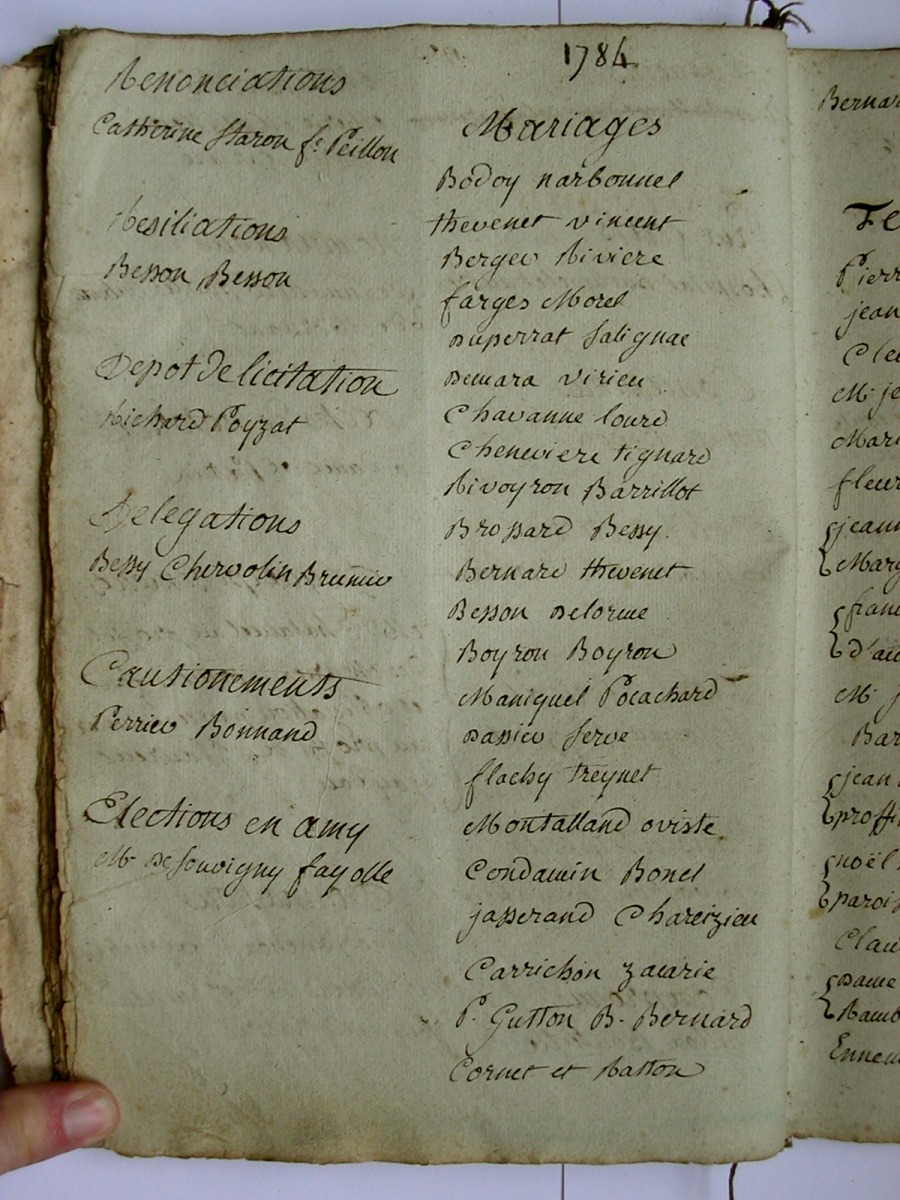 1784
Renonciations
Catherine Staron fe. Peillon
Resiliations
Besson Besson
Depot de licitation
Richard Poyzat
Delegations
Bessy Chervolin Brunier
Cautionements
Perrier Bonnand
Elections en amy
Mr. de Souvigny fayolle
Mariages
Bodoy narbonnel
thevenet vincent
Berger Riviere
farges Morel
Duperrat Salignac
Demara virieu
Chavanne lourd
Cheneviere tignard
Rivoyron Barrillot
Brossard Bessy.
Bernard thevenet
Besson Delorme
Boyron Boyron
Maniquet Pocachard
Dassier Serve
flachy treynet
Montalland oviste
Condamin Bonet
jasserand Chareizieu
Carrichon zacarie
P. Gutton B. Bernard
Cornet et Ratton
Bernar
Te
Pierr
jean
Cle
Mr. je
Mari
fleur
jeann
Marg
fran
d'au
Mr. J
Bar
jean
proffi
noël
parois
Clau
Dame
Ramb
Ennem